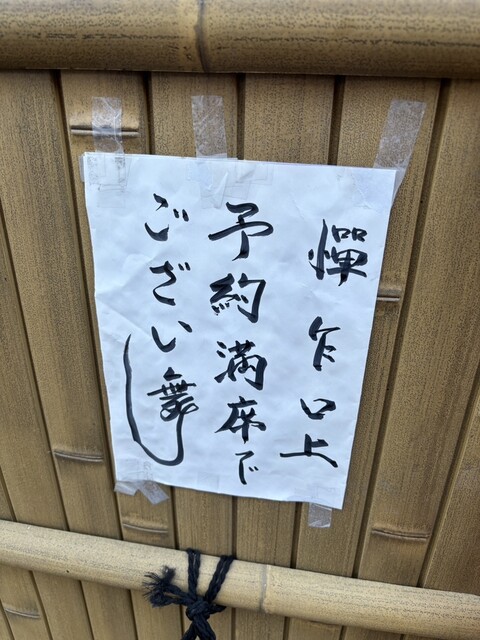 憚乍口上
予約満席で
ござい舞〼